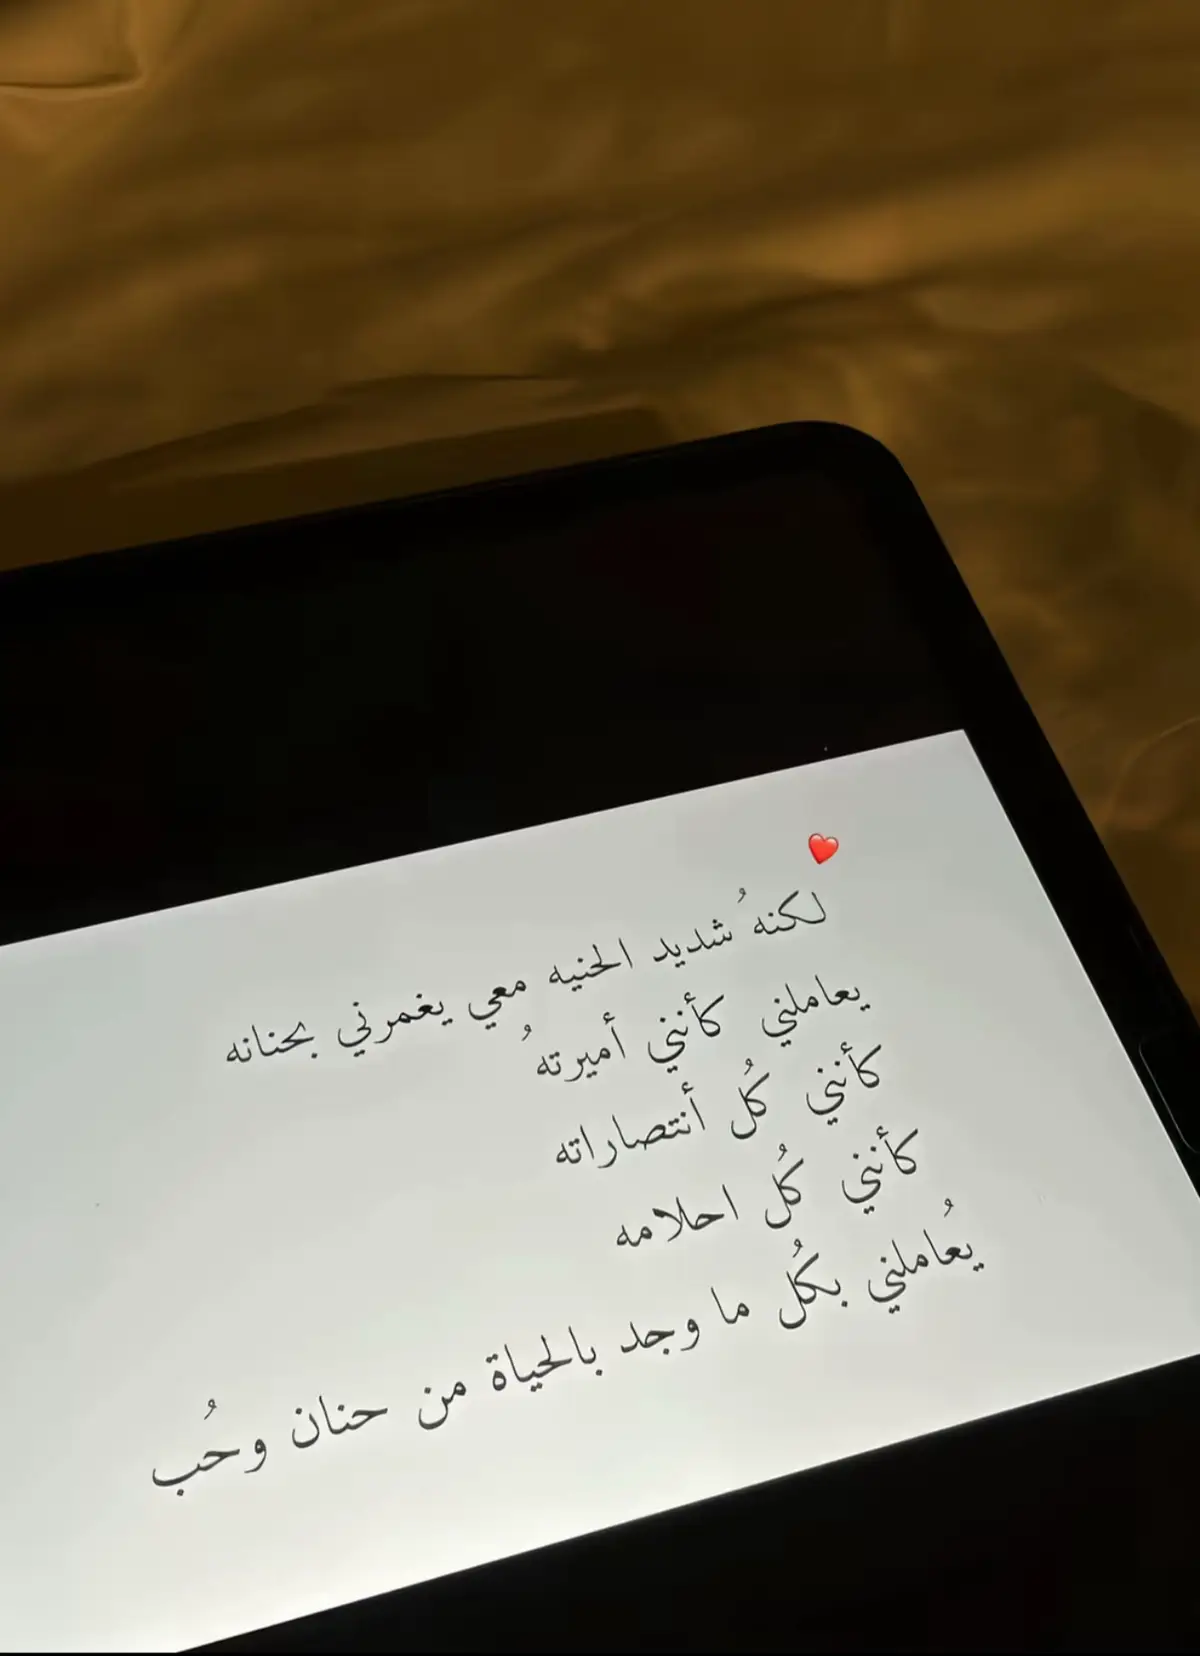 ❤️
لكنهُ شديد الحنيه معي يغمرني بحنانه
يعاملني كأنني أميرتهُ
كأنني كُل أنتصاراته
كأنني كُل احلامه
يُعاملني بكُل ما وجد بالحياة من حنان وحُب